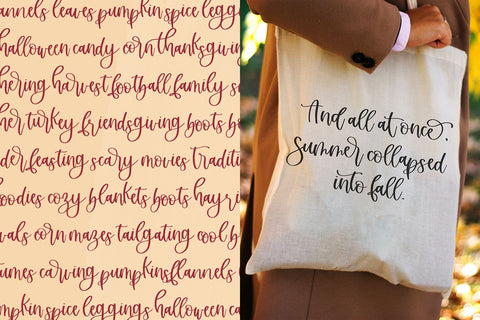 flannels leaves pumpkin spice legg
halloween candy corn thanksgivin
hering harvest football family s
her turkey friendsgiving boots b
der feasting scary movies traditi
oodies cozy blankets boots hayri
vals corn mazes tailgating cool b
umes carving pumpkins flannels
mpkin spice leggings halloween ca
And all at once,
Summer collapsed
into fall.